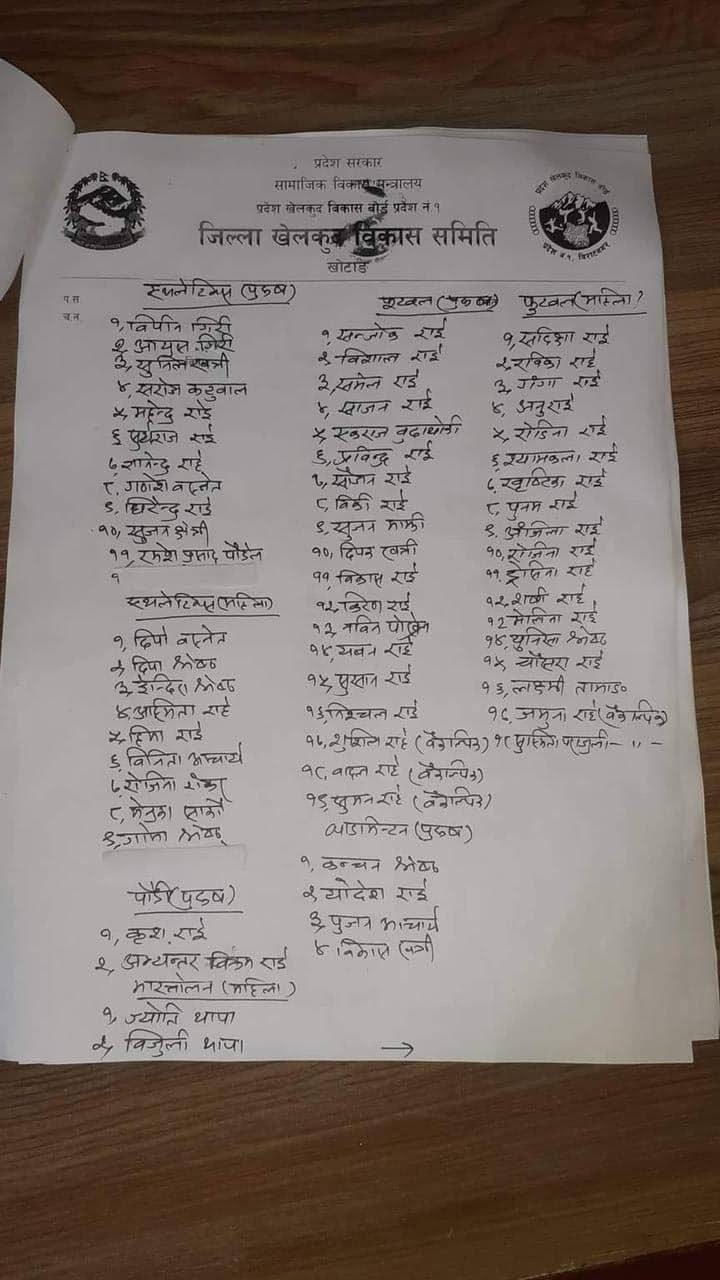 प्रदेश सरकार
सामाजिक विकास मन्त्रालय
प्रदेश खेलकुद विकास बोर्ड प्रदेश नं.१
जिल्ला खेलकुद विकास समिति
खोटाङ
प्रदेश खेलकुद विकास बोर्ड
प्रदेश नं. १, विराटनगर
प.स.
च.न.
एथलेटिक्स (पुरुष)
१, विपिन गिरी
२, आयुस गिरी
३, सुनिल खत्री
४, सरोज कटुवाल
५, महेन्द्र राई
६, सुर्यराज राई
७, ज्ञानेन्द्र राई
८, गणेश बस्नेत
९, धिरेन्द्र राई
१०, सुजन क्षेत्री
११, रमेश प्रसाद पौडेल
१
एथलेटिक्स (महिला)
१, दिपा बस्नेत
२, दिपा श्रेष्ठ
३, ईन्दिरा श्रेष्ठ
४, आस्मिता राई
५, हिमा राई
६, विनिता आचार्य
७, रोजिना
८, मेनुका सार्की
९, गोमा श्रेष्ठ
पौडी (पुरुष)
१, कृश राई
२, अभ्यन्तर विक्रम राई
भारत्तोलन (महिला)
१, ज्योति थापा
२, विजुली थापा
फुटबल (पुरुष)
१, सन्जोक राई
२, विशाल राई
३, समेल राई
४, साजन राई
५, एकराज बुढाथोकी
६, प्रविन्द्र राई
७, सौजन राई
८, विकी राई
९, सुजन माझी
१०, दिपक खत्री
११, विकास राई
१२, किरण राई
१३, नविन पोख्रेल
१४, यवन राई
१५, सुसान राई
१६, निश्चल राई
१७, सुशील राई (वैकल्पिक)
१८, राई (वैकल्पिक)
१९, सुमन राई (वैकल्पिक)
ब्याडमिन्टन (पुरुष)
१, कन्चन श्रेष्ठ
२, योदेश राई
३, पुजन आचार्य
४, विकास खत्री
फुटबल (महिला)
१, सदिक्षा राई
२, रविका राई
३, गंगा राई
४, अनु राई
५, रोजिना राई
६, श्यामकला राई
७, राई
८, पुनम राई
९, अंजिला राई
१०, रोजिना राई
११, राई
१२, राई
१३ मेलिना राई
१४, युनिसा श्रेष्ठ
१५, राई
१६, लक्ष्मी तामाङ
१७, जमुना राई (वैकल्पिक)
१८ सुस्मिता - ,, -
→